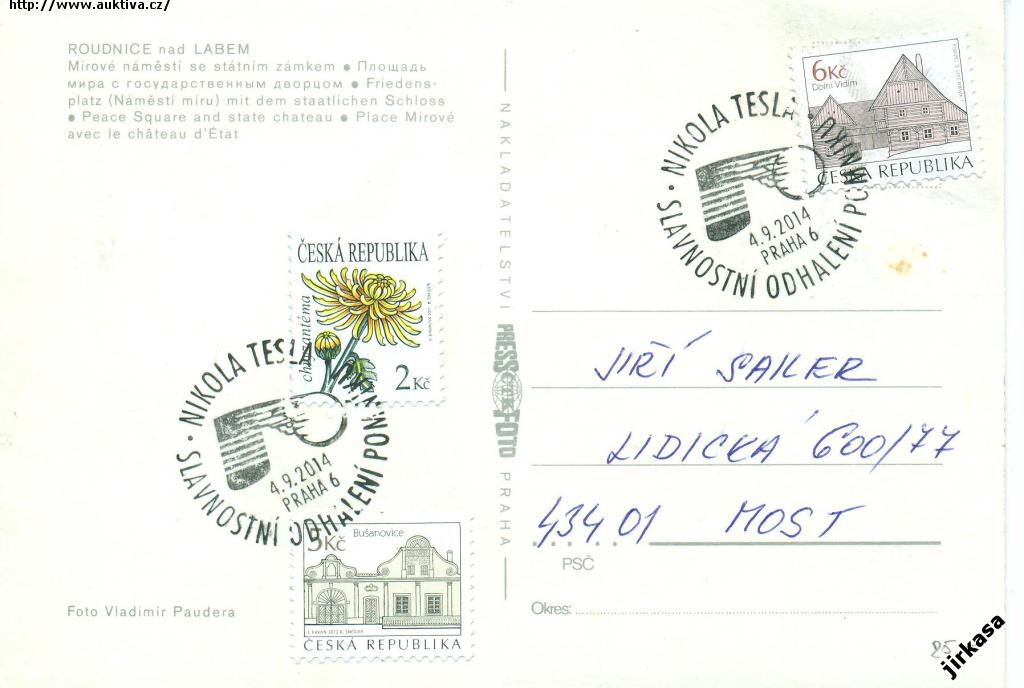 http://www.auktiva.cz/
ROUDNICE nad LABEM
Mírové náměstí se státním zámkem • Площадь
мира с государственным дворцом • Friedens-
platz (Náměstí míru) mit dem staatlichen Schloss
• Peace Square and state chateau • Place Mírové
avec le château d'État
NAKLADATELSTVÍ
PRESSFOTO
PRAHA
6Kč
Dolní Vidim
ČESKÁ REPUBLIKA
NIKOLA TESLA
SLAVNOSTNÍ ODHALENÍ POMNÍKU
4.9.2014
PRAHA 6
ČESKÁ REPUBLIKA
chrysantéma
2 Kč
NIKOLA TESLA
SLAVNOSTNÍ ODHALENÍ POMNÍ
4.9.2014
PRAHA 6
5Kč
Bušanovice
ČESKÁ REPUBLIKA
JIŘÍ SAILER
LIDICKÁ 600/77
434 01 MOST
PSČ
Okres:
Foto Vladimír Paudera
25
jirkasa